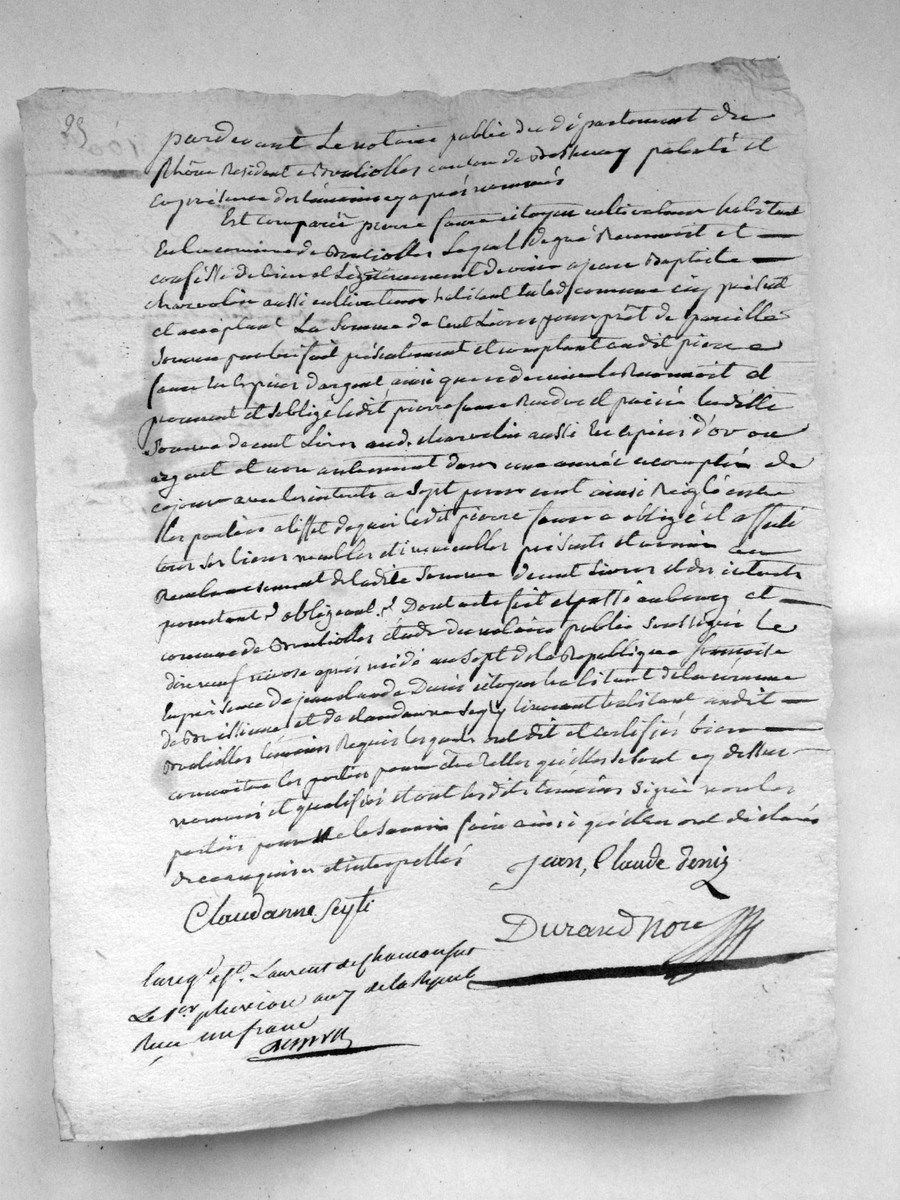 25
pardevant Le notaire public du département du
Rhône Résident a Brulliolles canton de Bessenay patenté et
en présence des témoins cy après nommés
Est comparu pierre faure citoyen cultivateur habitant
En la comune de Brulliolles Lequel de gré Reconnoit et
confesse de bien et Légitimement devoir a jean Baptiste
charvolin aussi cultivateur habitant en lad. commune icy présent
et acceptant La Somme de Cent Livres pour prêt de pareille
Somme par lui fait présentement et comptant audit pierre
faure En Espèces d'argent, ainsi que ce dernier le Reconnoit et
promment et s'oblige ledit pierre faure Rendre et paier ladite
Somme de cent Livres aud. charvolin aussi En espèces d'or ou
argent et non autrement dans une année a comptée de
cejour avec les interets a Sept pour cent ainsi Réglé entre
Les parties a l'effet de quoi ledit pierre faure a obligé et affecté
tous ses biens meubles et immeubles présents et avenir au
Remboursement de ladite Somme de cent Livres et des interets
promettant &. obligeant &. Dont acte fait et passé au bourg et
comune de Brulliolles étude du notaire public Soussigné Le
dix neuf nivose après midi an Sept de la République française
En présence de jean claude Deniz citoyen habitant de la commune
de Brussieux et de claudanne Seyty tisserant habitant audit
Brulliolles témoins Requis Lesquels ont dit et certifiés bien
connoitre les parties pour être telles qu'elles se sont cy dessus
nommés et qualifiés et ont lesdits témoins Signé non les
parties pour ne le Savoir faire ainsi qu'elles ont déclarés
de ce enquises et interpellés
jean, Claude deniz
Claudanne Seyti
Durand Nore
Enreg. à St. Laurent de Chamousset
Le 1er. pluviose an 7 de la Repub
Reçu un franc